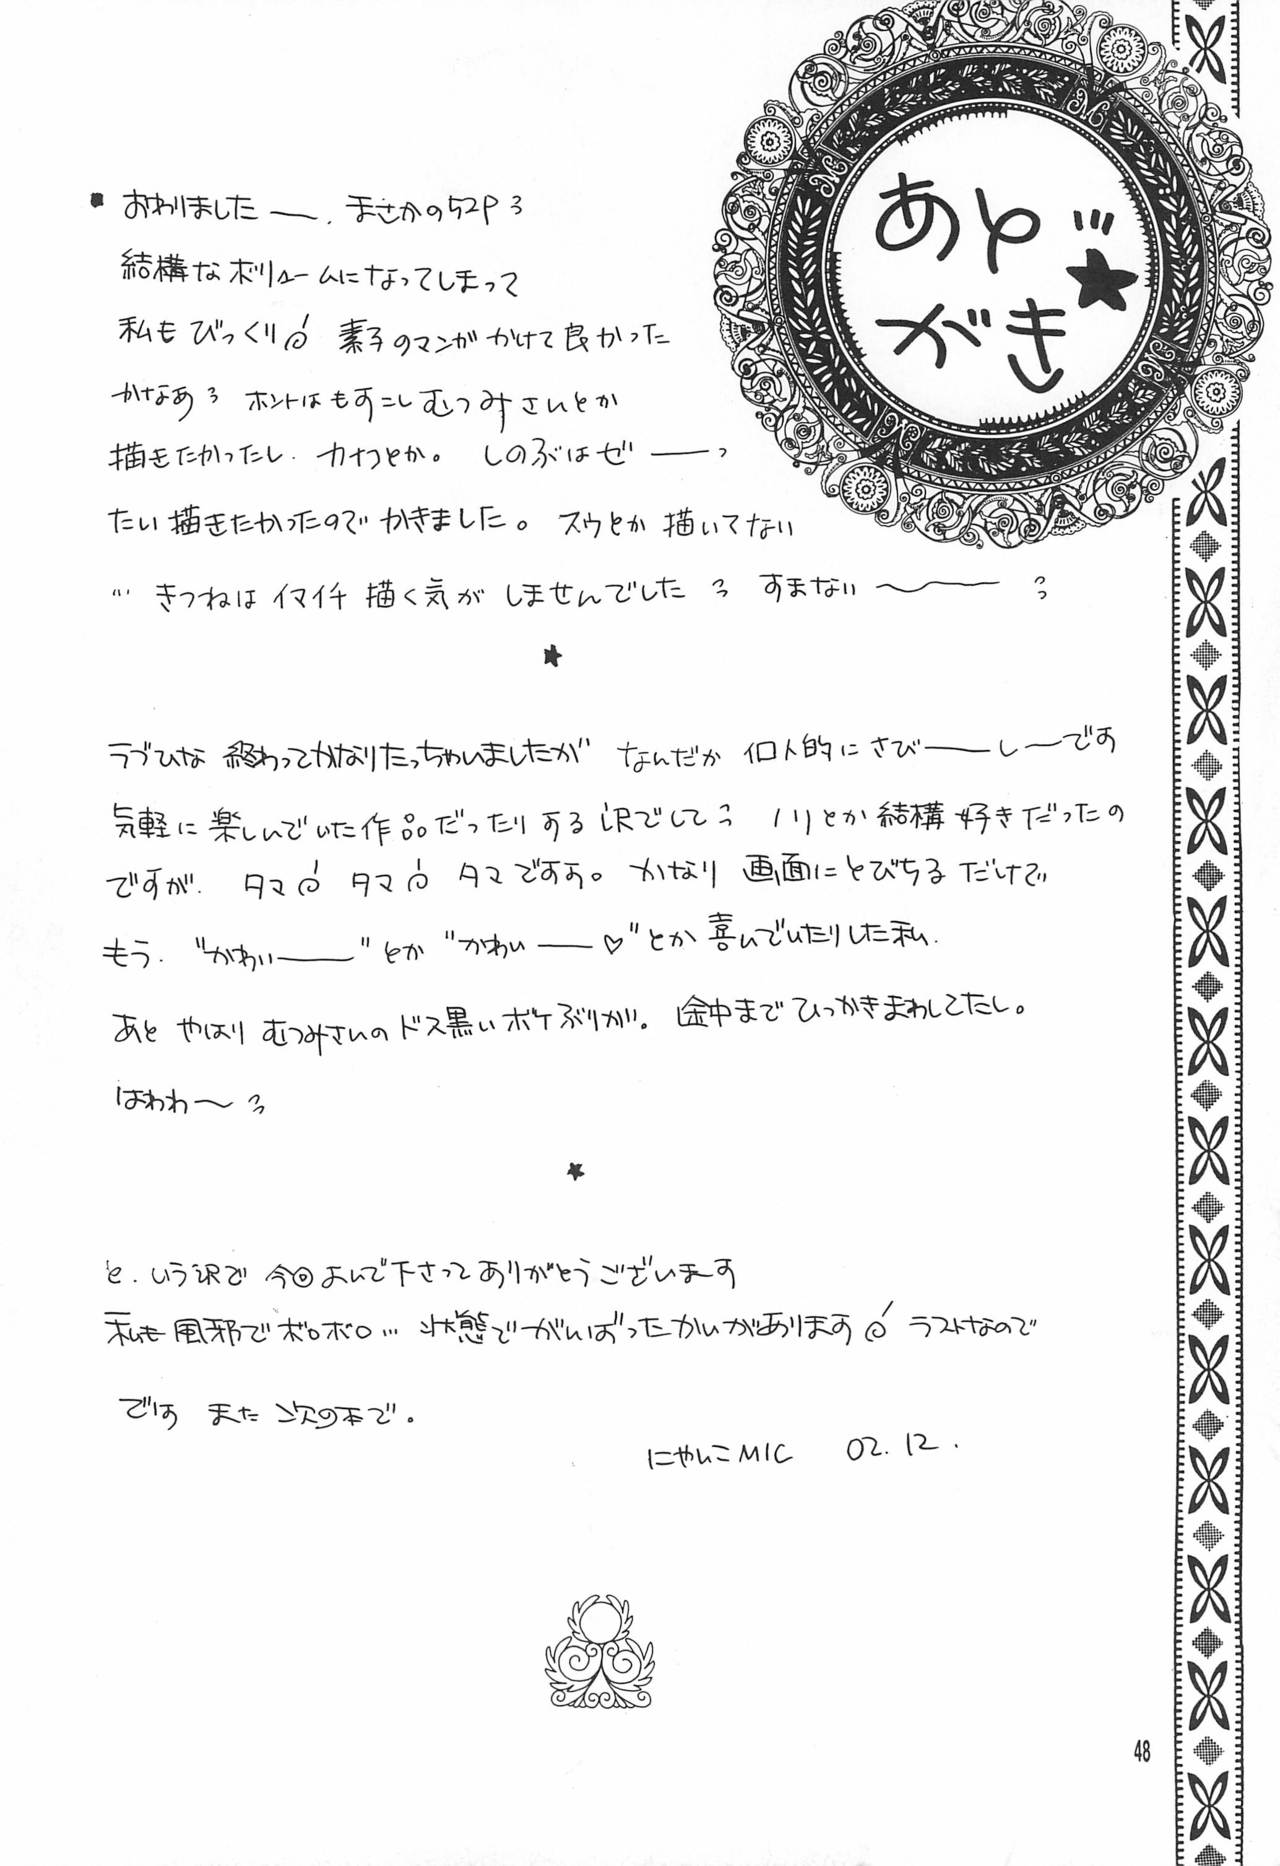 あと…★
がき
おわりましたー、まさかの52P
結構なボリュームになってしまって
私もびっくり 素子のマンガかけて良かった
かなあ ホントはもすこしむつみさんとか
描きたかったし、カナコとか。しのぶはぜーーっ
たい描きたかったのでかきました。スウとか描いてない
… きつねはイマイチ描く気がしませんでした すまない〜〜
★
ラブひな終わってかなりたっちゃいましたが なんだか個人的にさびーーしーです
気軽に楽しんでいた作品だったりする訳でして ノリとか結構好きだったの
ですが、タマ タマ タマですよ。かなり画面にとびちるだけで
もう、"かわいーー"とか"かわいーー♡"とか喜んでいたりした私、
あとやはりむつみさんのドス黒いボケぶりが。途中までひっかきまわしてたし。
はわわ〜
★
と、いう訳で今回よんで下さってありがとうございます
私も風邪でボロボロ…状態でがんばったかいがあります ラストなので
です また次の本で。
にゃんこMIC 02.12.
48